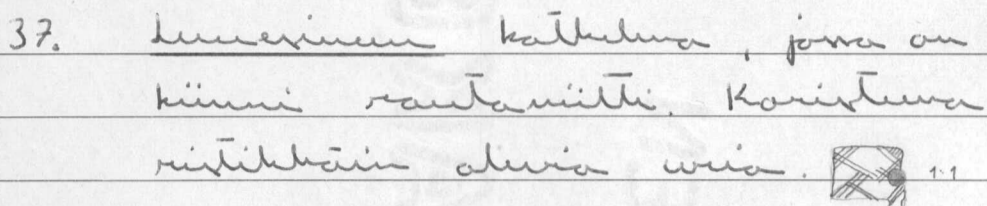 37. Luuesineen katkelma, jossa on
kiinni rautaniitti. Koristeena
ristikkäin olevia uria. 1:1